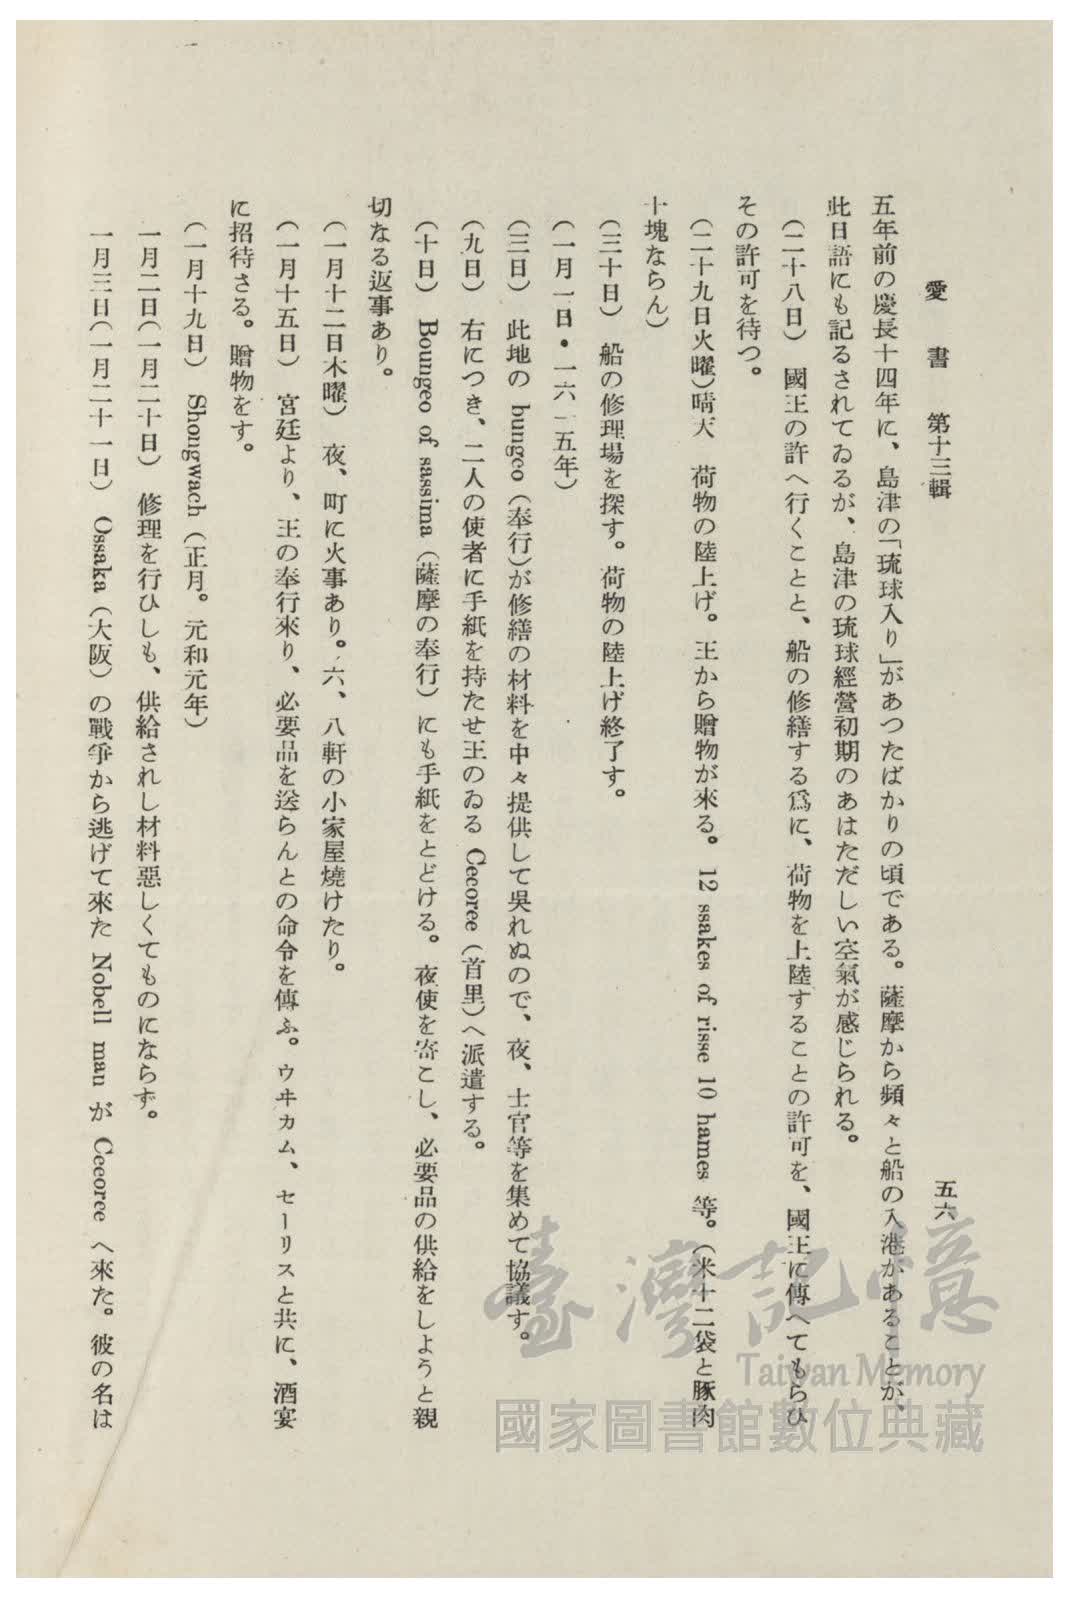 愛書 第十三輯
五六
五年前の慶長十四年に、島津の「琉球入り」があつたばかりの頃である。薩摩から頻々と船の入港があることが、
此日語にも記るされてゐるが、島津の琉球經營初期のあはただしい空氣が感じられる。
(二十八日) 國王の許へ行くことと、船の修繕する爲に、荷物を上陸することの許可を、國王に傳へてもらひ
その許可を待つ。
(二十九日火曜)晴天 荷物の陸上げ。王から贈物が來る。12 ssakes of risse 10 hames 等。(米十二袋と豚肉
十塊ならん)
(三十日) 船の修理場を探す。荷物の陸上げ終了す。
(一月一日・一六一五年)
(三日) 此地の bungeo (奉行)が修繕の材料を中々提供して吳れぬので、夜、士官等を集めて協議す。
(九日) 右につき、二人の使者に手紙を持たせ王のゐる Cecoree (首里)へ派遣する。
(十日) Boungeo of sassima (薩摩の奉行) にも手紙をとどける。夜使を寄こし、必要品の供給をしようと親
切なる返事あり。
(一月十二日木曜) 夜、町に火事あり。六、八軒の小家屋燒けたり。
(一月十五日) 宮廷より、王の奉行來り、必要品を送らんとの命令を傳ふ。ウヰカム、セーリスと共に、酒宴
に招待さる。贈物をす。
(一月十九日) Shongwach (正月。元和元年)
一月二日(一月二十日) 修理を行ひしも、供給されし材料惡しくてものにならず。
一月三日(一月二十一日) Ossaka (大阪) の戰爭から逃げて來た Nobell man が Cecoree へ來た。彼の名は
臺灣記憶
Taiwan Memory
國家圖書館數位典藏